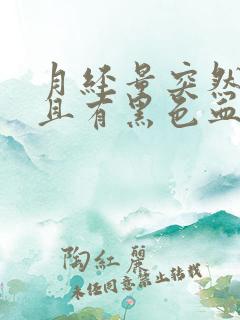 月经量突然
且有黑色血
陶紅麗
未经同意禁止转载